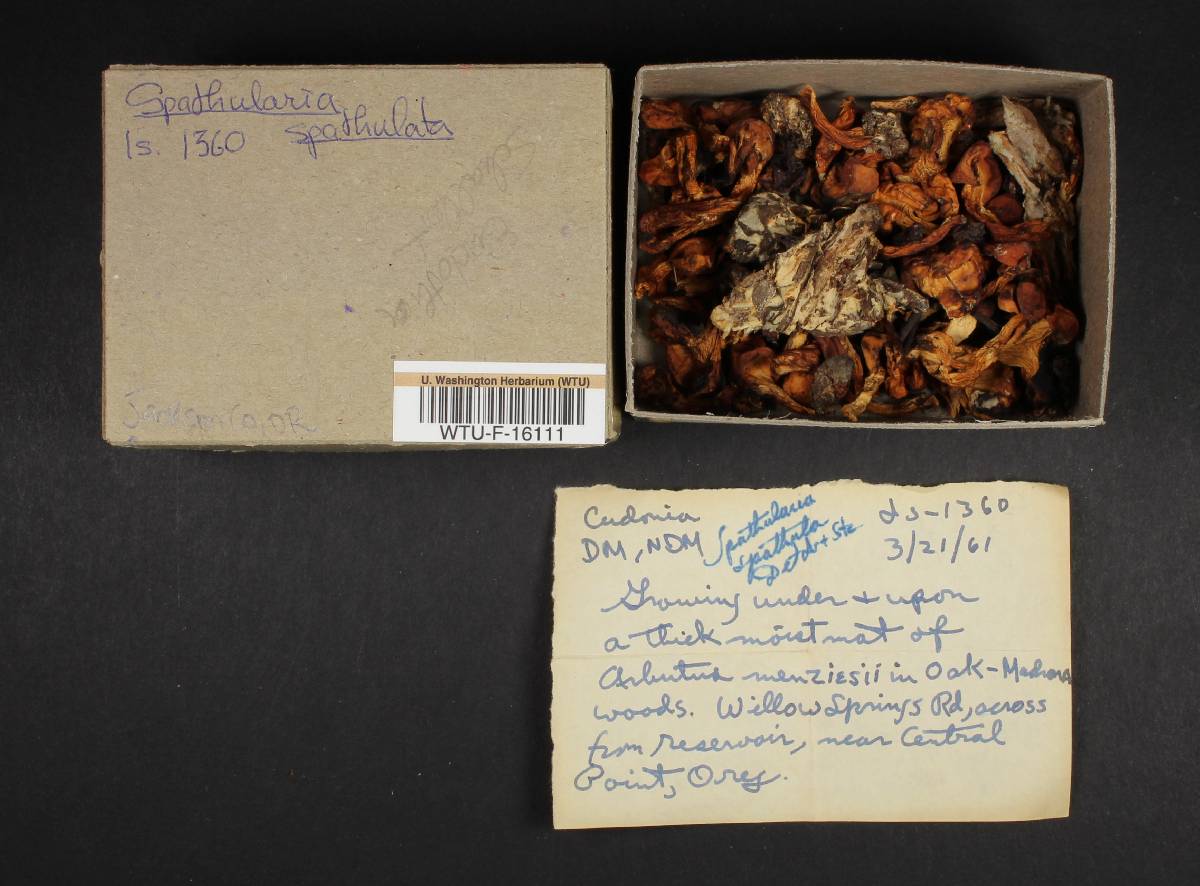 Spathularia
Is. 1360 spathulata
OR
U. Washington Herbarium (WTU)
WTU-F-16111
Cudonia
DM, NDM
Spathularia
Is-1360
3/21/61
Growing under + upon
a thick moist mat of
Arbutus menziesii in Oak-Madrona
woods. Willow Springs Rd, across
from reservoir, near Central
Point, Oreg.